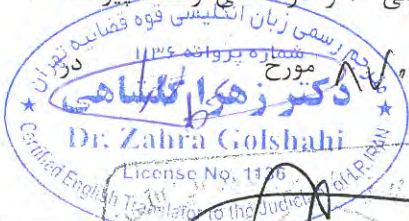 مترجم رسمی زبان انگلیسی قوه قضاییه تهران
شماره پروانه ۱۱۳۶
مورخ
در
دکتر زهرا گلشاهی
Dr. Zahra Golshahi
License No, 1136
Certified English Translator to the Judiciary of I.R. IRAN